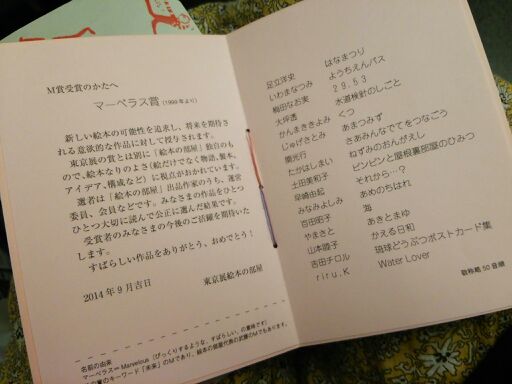 M賞受賞のかたへ
マーベラス賞 (1999年より)
新しい絵本の可能性を追求し、将来を期待さ
れる意欲的な作品に対して授与されます。
東京展の賞とは別に「絵本の部屋」独自のも
ので、絵本ならのよさ(絵だけでなく物語、製本、
アイデア、構成など)に視点がおかれています。
選者は「絵本の部屋」出品作家のうち、運営
委員、会員などです。みなさんの作品をひとつ
ひとつ大切に読んで公正に選んだ結果です。
受賞者のみなさまの今後のご活躍を期待いた
します。
すばらしい作品をありがとう、おめでとう!
2014年9月吉日
東京展絵本の部屋
名前の由来
マーベラス=Marvelous(びっくりするような、すばらしい、の意味です)
の賞のキーワード「未来」のMであり、絵本の部屋代表の武藤のMでもあります。
足立洋史 はなまつり
いわまなつみ ようちえんバス
梅田なお実 29.5.3
大坪透 水道検針のしごと
かんまききよみ くつ
じゅげさとみ あまつみず
関光行 さあみんなでてをつなごう
たかはしまい ねずみのおんがえし
土田美和子 ピンピンと屋根裏部屋のひみつ
早崎由起 それから…?
みなみよしみ あめのちはれ
百田昭子 海
やまさと あきとまゆ
山本陵子 かえる日和
吉田チロル 琉球どうぶつポストカード集
riru.K Water Lover
敬称略50音順